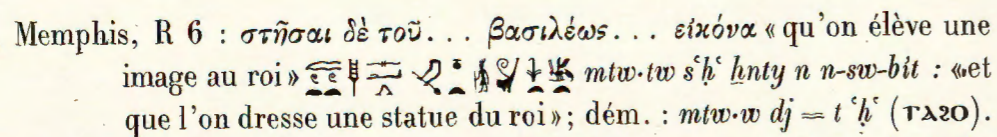 Memphis, R 6 : στῆσαι δὲ τοῦ... βασιλέως... εἰκόνα « qu'on élève une
image au roi » mtw·tw sʿḥʿ ḫnty n n-sw-bit : « et
que l'on dresse une statue du roi »; dém. : mtw·w dj = t ʿḥʿ (ⲧⲁϩⲟ).